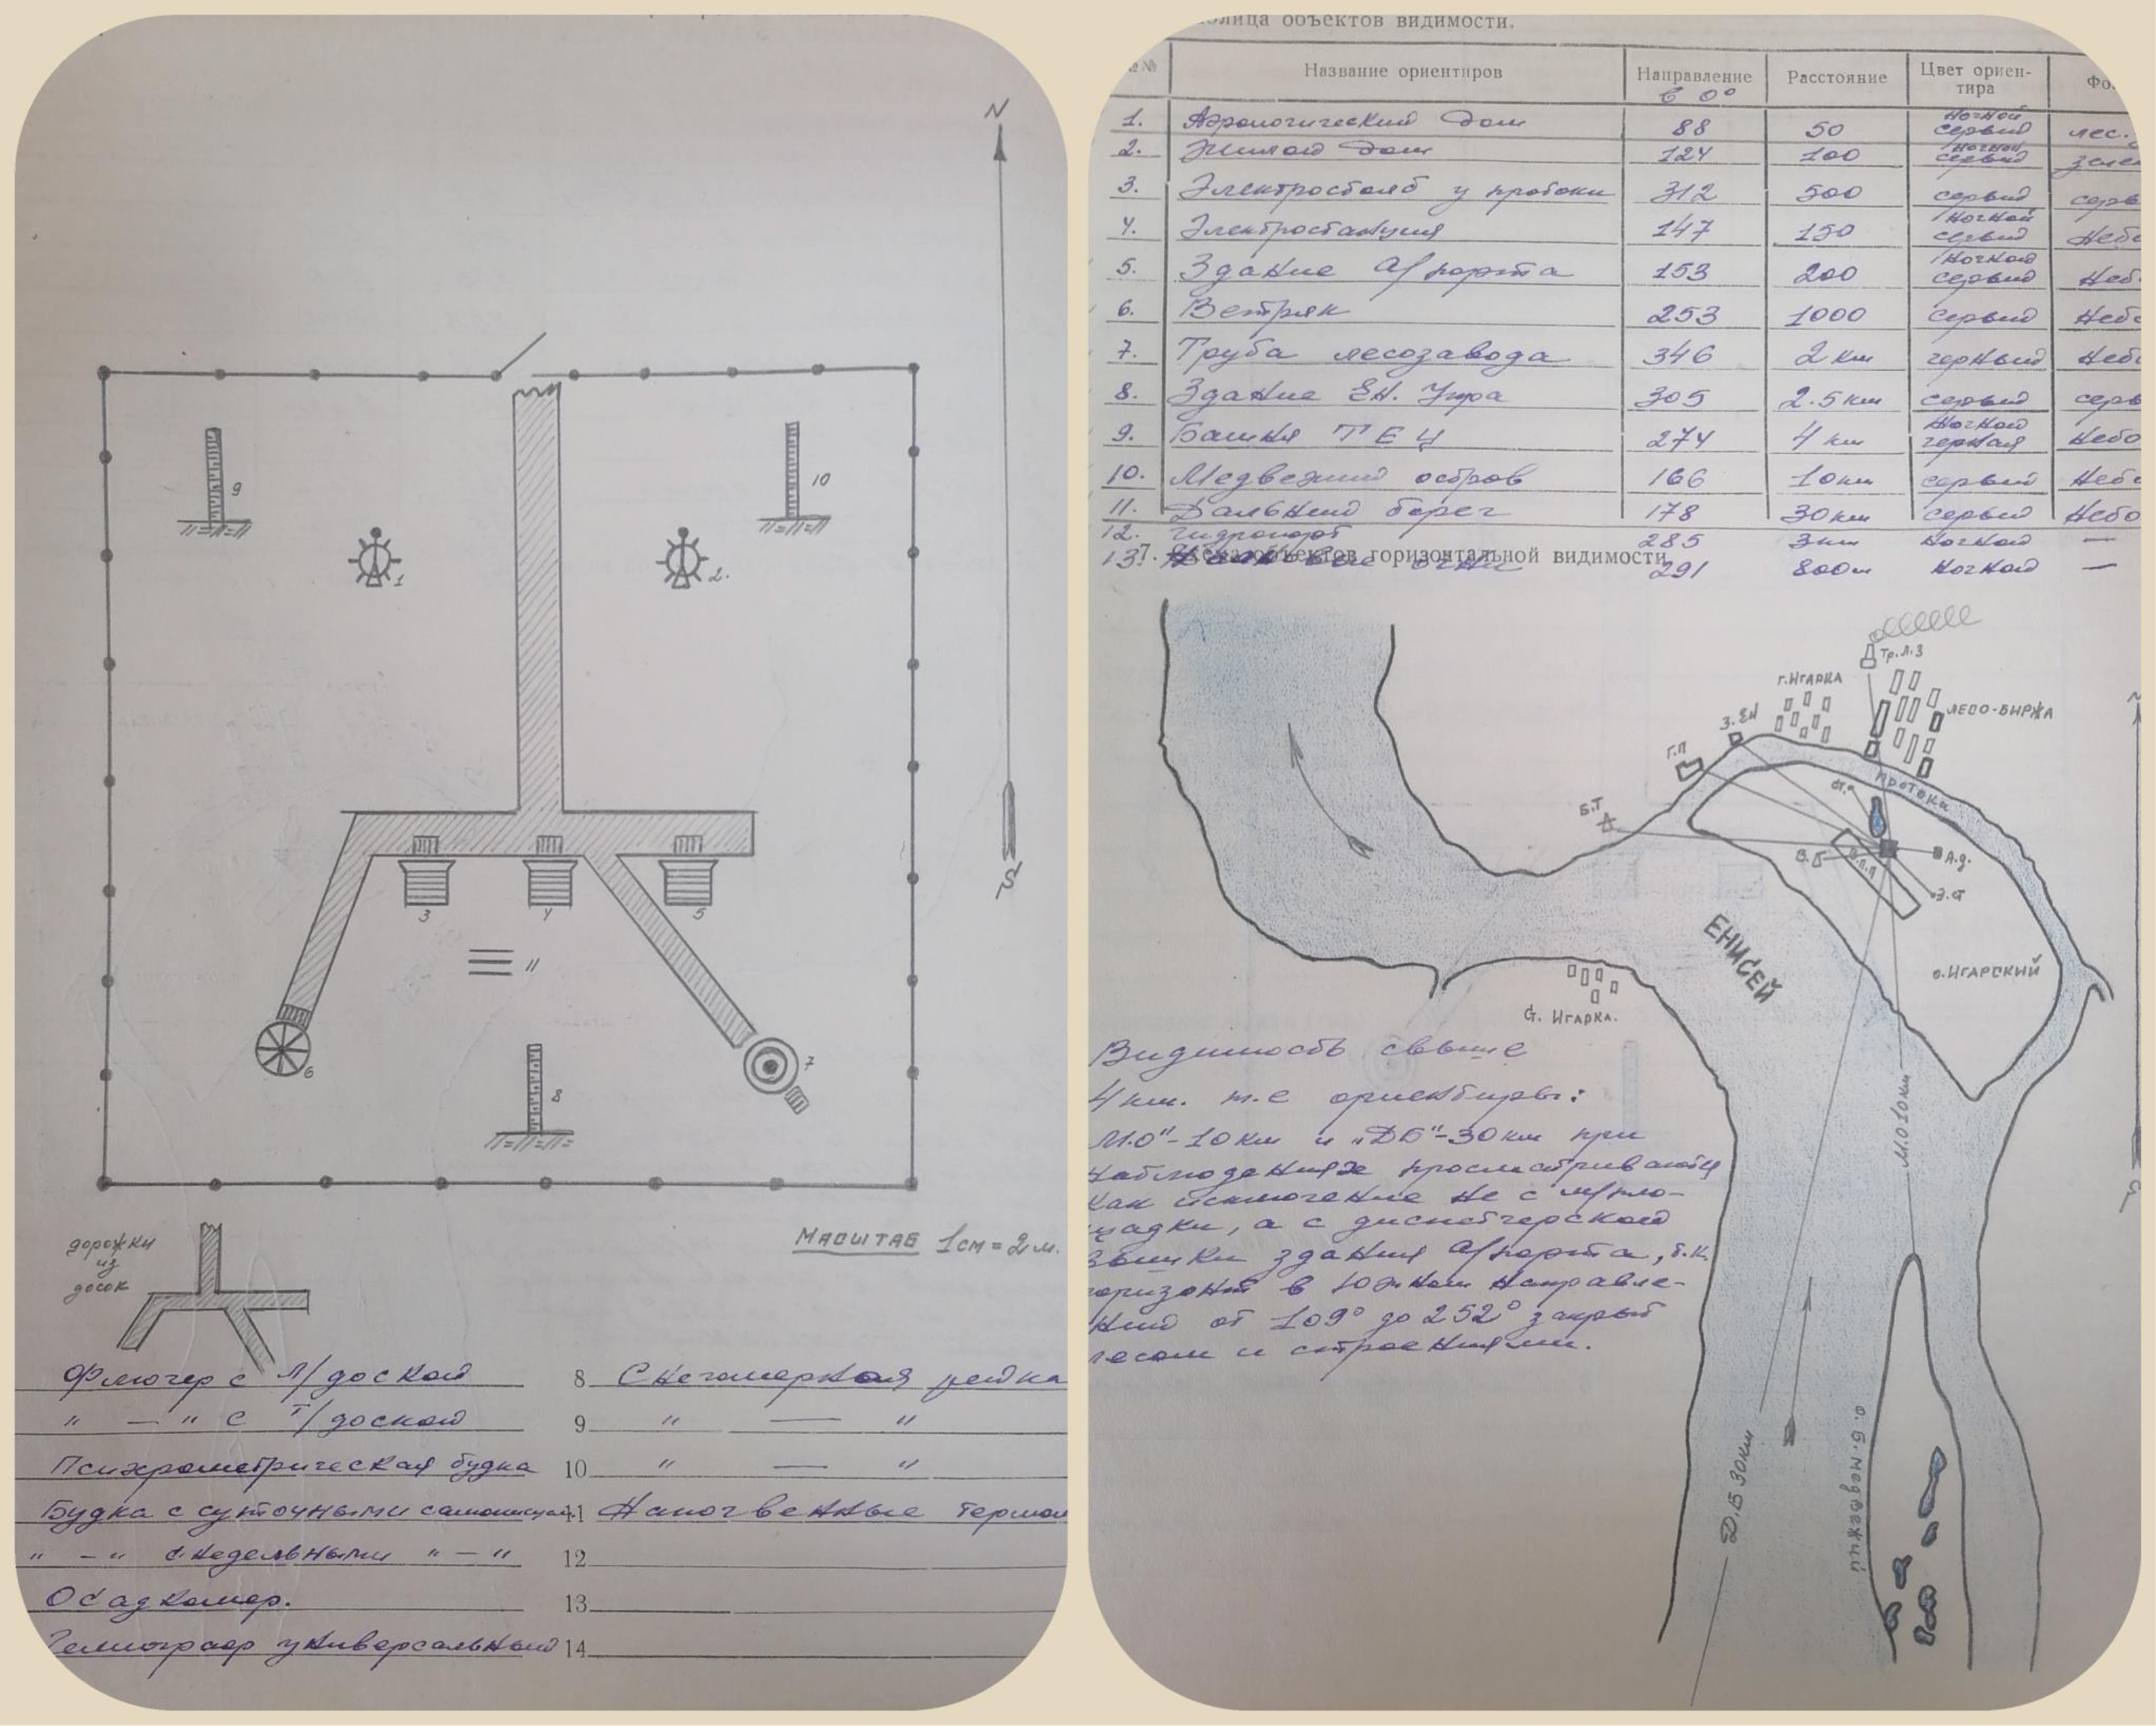 N
9
10
1
2.
3
4
5
11
6
7
8
S
Масштаб 1см = 2 м.
дорожки
из
досок
Флюгер с Л/доской
" — " с Т/доской
Психрометрическая будка
Будка с суточными самописцами
" — " с недельными " — "
Осадкомер.
Гелиограф универсальный
8 Снегомерная рейка
9 " — "
10 " — "
11 Напочвенные термом
12
13
14
лица объектов видимости.
№ Название ориентиров Направление Расстояние Цвет ориен-тира Фо
в 0°
1. Аэрологический дом 88 50 ночной серый лес.
2. Жилой дом 124 100 ночной серый зелен
3. Электростолб у протоки 312 500 серый серы
4. Электростанция 147 150 ночной серый Небо
5. Здание А/порта 153 200 ночной серый Неб
6. Ветряк 253 1000 серый Небо
7. Труба лесозавода 346 2 км черный Небо
8. Здание ЕН. Упра 305 2.5 км серый серы
9. Башня ТЕЦ 274 4 км ночной черная Небо
10. Медвежий остров 166 10 км серый Небо
11. Дальний берег 178 30 км серый Небо
12. Гидропорт 285 3 км ночной —
13. огни 291 800 м ночной —
7. Схема объектов горизонтальной видимости
Тр.Л.З
г.Игарка
Лесо-биржа
З.ЕН
Г.П
протока
Б.Т
В.П.П
А.д.
Э.С
Енисей
о.Игарский
С. Игарка.
М.О 10км
Д.Б 30км
о. Б. Медвежий
Видимость свыше
4 км. т.е ориентиры:
М.О"-10 км и „ДБ"-30 км при
наблюдениях просматриваются
как исключение не с м/пло-
щадки, а с диспетчерской
вышки здания А/порта, т.к.
горизонт в южном направле-
нии от 109° до 252° закрыт
лесом и строениями.